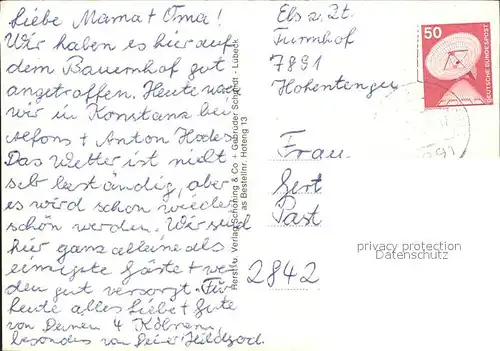 Liebe Mama + Oma!
Wir haben es hier auf
dem Bauernhof gut
angetroffen. Heute war
wir in Konstanz bei
Alfons + Anton
Das Wetter ist nicht
beständig, aber
es wird schon wieder
schön werden. Wir sind
hier ganz alleine als
einzigste Gäste + we
den gut versorgt. Für
heute alles Liebe + Gute
von Deinen 4
besonders von Deiner
Herst. u. Verlag Schöning & Co + Gebrüder Schmidt - Lübeck
as Bestellnr. Hoteng 13
Ebs z. Zt.
Turmhof
7891
Hohentengen
50
DEUTSCHE BUNDESPOST
Frau
Gert
Past
2842
privacy protection
Datenschutz